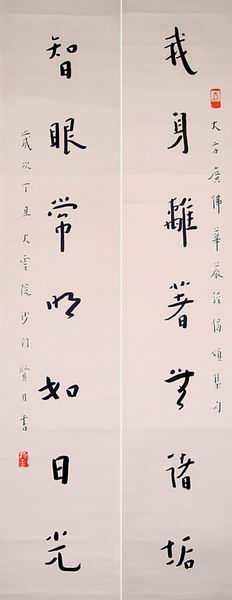 大方廣佛華嚴經偈頌集句
我身離著無諸垢
智眼常明如日光
歲次丁丑大雲院沙门賢月書